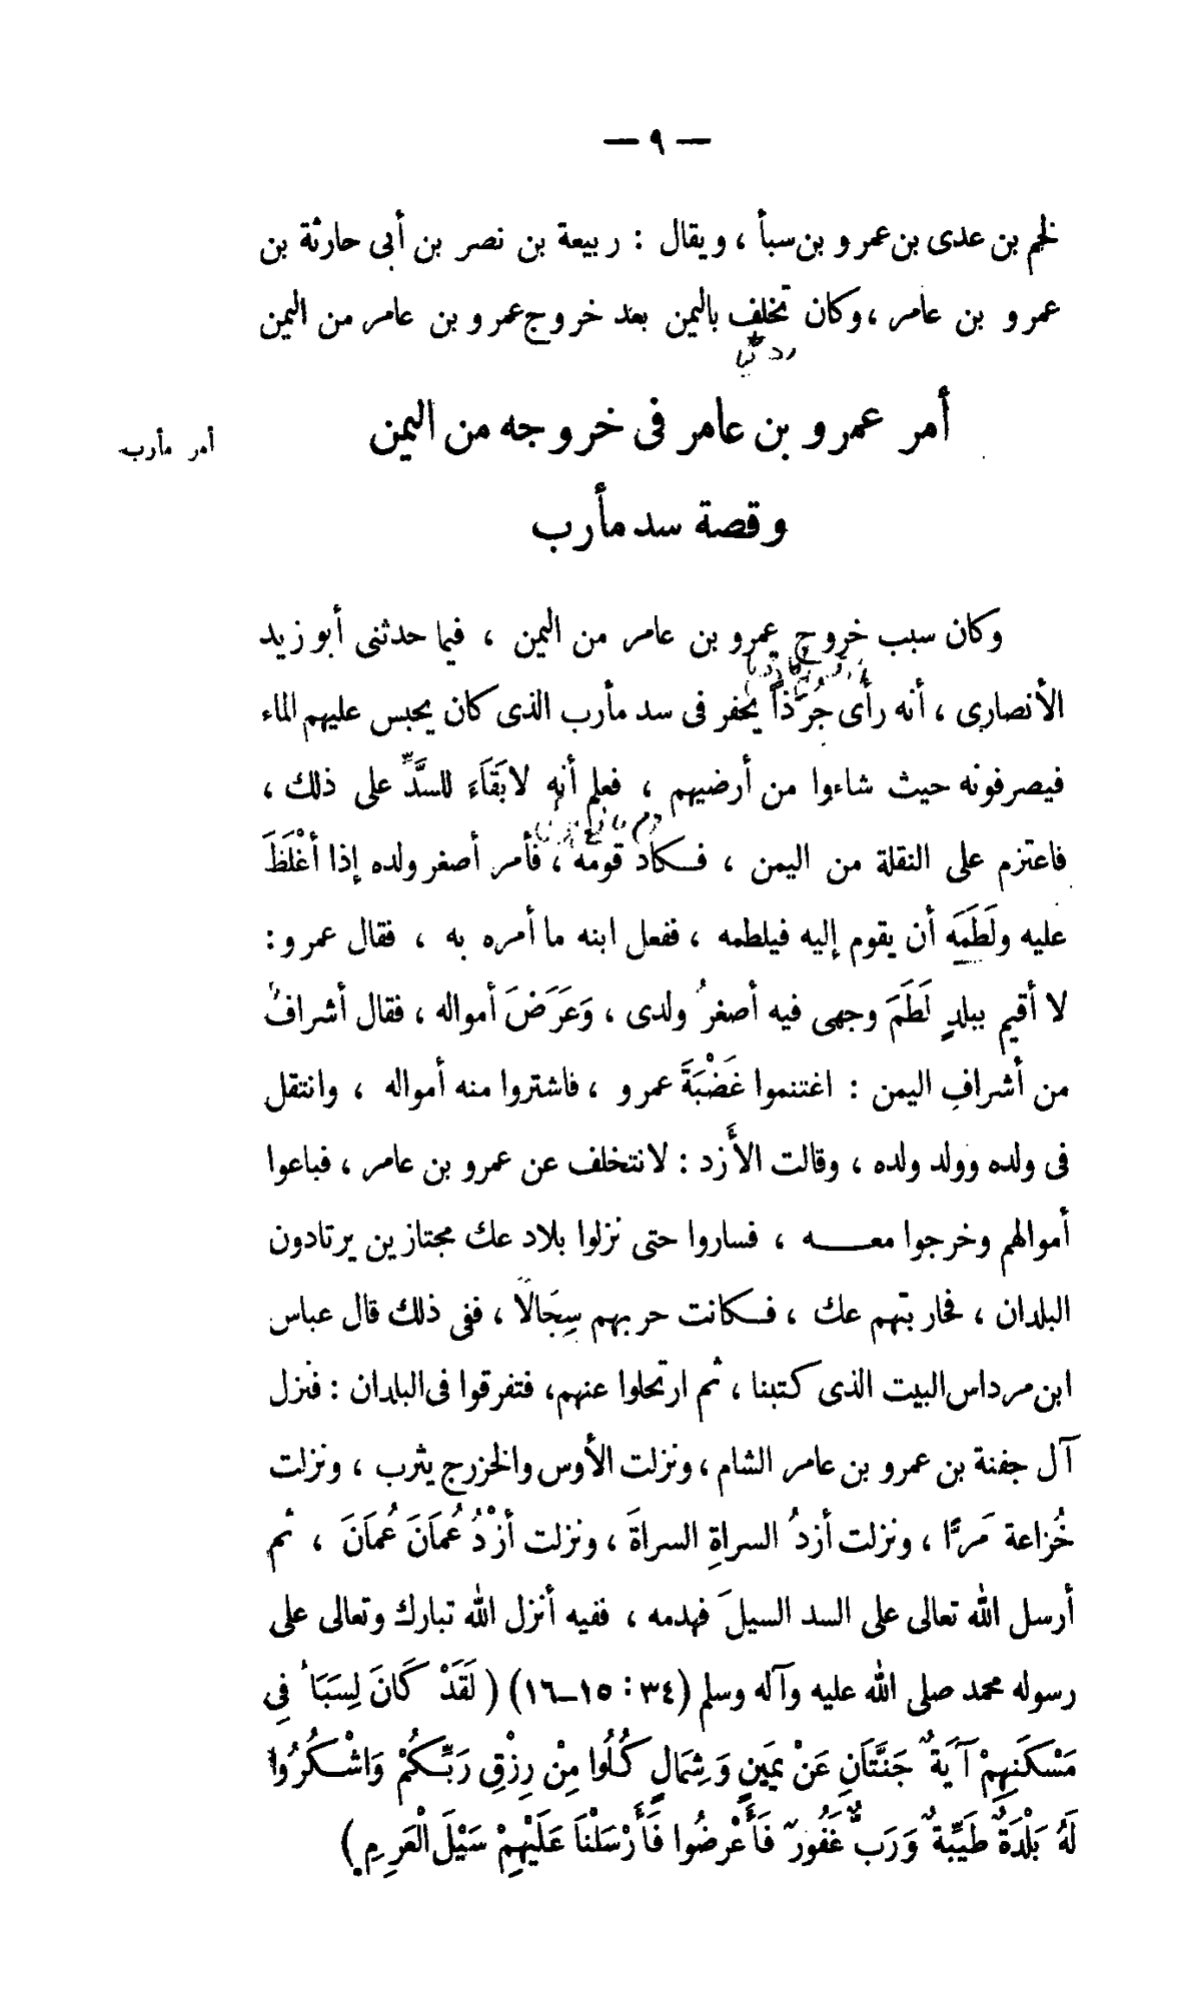 — ٩ —
لخم بن عدى بن عمرو بن سبأ ، ويقال : ربيعة بن نصر بن أبى حارثة بن
عمرو بن عامر ، وكان تخلف باليمن بعد خروج عمرو بن عامر من اليمن
أمر عمرو بن عامر فى خروجه من اليمن
أمر مأرب
وقصة سد مأرب
وكان سبب خروج عمرو بن عامر من اليمن ، فيما حدثنى أبو زيد
الأنصارى ، أنه رأى جُرَذاً يحفر فى سد مأرب الذى كان يحبس عليهم الماء
فيصرفونه حيث شاءوا من أرضيهم ، فعلم أنه لا بَقَاءَ للسَّدِّ على ذلك ،
فاعتزم على النقلة من اليمن ، فكاد قومَه ، فأمر أصغر ولده إذا أغْلَظَ
عليه ولَطَمَه أن يقوم إليه فيلطمه ، ففعل ابنه ما أمره به ، فقال عمرو :
لا أقيم ببلدٍ لَطَمَ وجهى فيه أصغرُ ولدى ، وَعَرَضَ أمواله ، فقال أشرافٌ
من أشرافِ اليمن : اغتنموا غَضْبَةَ عمرو ، فاشتروا منه أمواله ، وانتقل
فى ولده وولد ولده ، وقالت الأَزد : لا نتخلف عن عمرو بن عامر ، فباعوا
أموالهم وخرجوا معــه ، فساروا حتى نزلوا بلاد عك مجتازين يرتادون
البلدان ، فحاربتهم عك ، فكانت حربهم سِجَالًا ، ففى ذلك قال عباس
ابن مرداس البيت الذى كتبنا ، ثم ارتحلوا عنهم، فتفرقوا فى البلدان : فنزل
آل جفنة بن عمرو بن عامر الشام ، ونزلت الأوس والخزرج يثرب ، ونزلت
خُزاعة مَرًّا ، ونزلت أزدُ السراةِ السراةَ ، ونزلت أزْدُ عُمَانَ عُمَانَ ، ثم
أرسل الله تعالى على السد السيلَ فهدمه ، ففيه أنزل الله تبارك وتعالى على
رسوله محمد صلى الله عليه وآله وسلم (٣٤ : ١٥–١٦) ( لَقَدْ كَانَ لِسَبَأ فِى
مَسْكَنِهِمْ آيَةٌ جَنَّتَانِ عَنْ يَمِينٍ وَشِمَالٍ كُلُوا مِنْ رِزْقِ رَبِّكُمْ وَاشْكُرُوا
لَهُ بَلْدَةٌ طَيِّبَةٌ وَرَبٌّ غَفُورٌ فَأَعْرَضُوا فَأَرْسَلْنَا عَلَيْهِمْ سَيْلَ الْعَرِمِ )